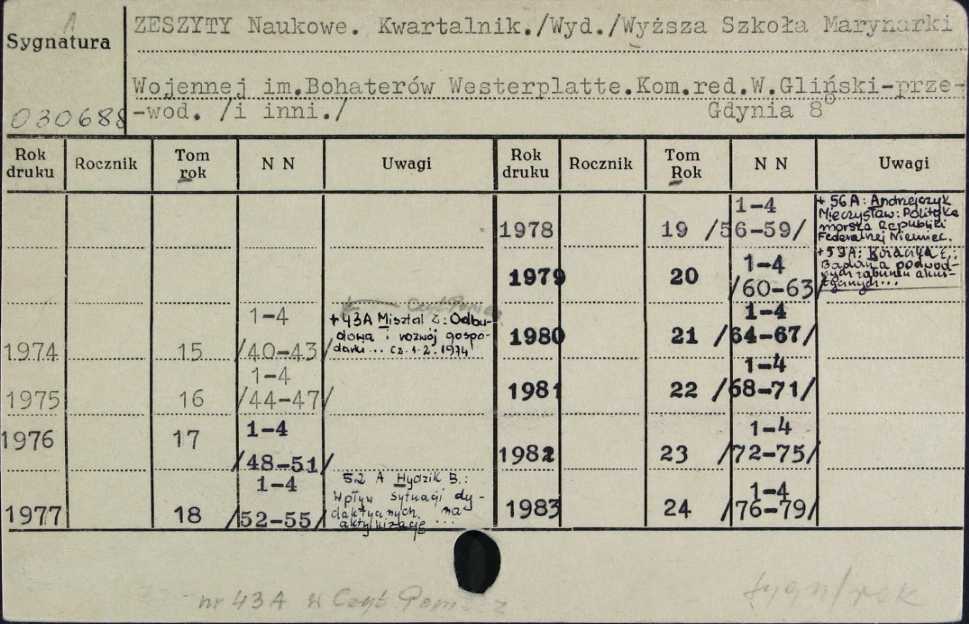 A
Sygnatura
030688
ZESZYTY Naukowe. Kwartalnik./Wyd./Wyższa Szkoła Marynarki
Wojennej im.Bohaterów Westerplatte.Kom.red.W.Gliński-prze-
-wod. /i inni./ Gdynia 8°
Rok druku Rocznik Tom rok N N Uwagi
1974 15 1-4 /40-43/ + 43A Misztal Z: Odbu-
dowa i rozwój gospo-
darki... cz. 1-2. 1974
1975 16 1-4 /44-47/
1976 17 1-4 /48-51/
1977 18 1-4 /52-55/ 52 A Hydzik B.:
Wpływ sytuacji dy-
daktycznych na
...
Rok druku Rocznik Tom Rok N N Uwagi
1978 19 1-4 /56-59/ + 56A: Andrzejczyk
Mieczysław: Polityka
morska Republiki
Federalnej Niemiec.
1979 20 1-4 /60-63/ + 59A:
Badania podwod-
nych
...
1980 21 1-4 /64-67/
1981 22 1-4 /68-71/
1982 23 1-4 /72-75/
1983 24 1-4 /76-79/
nr 43A w Czyt Pom
sygn/rok